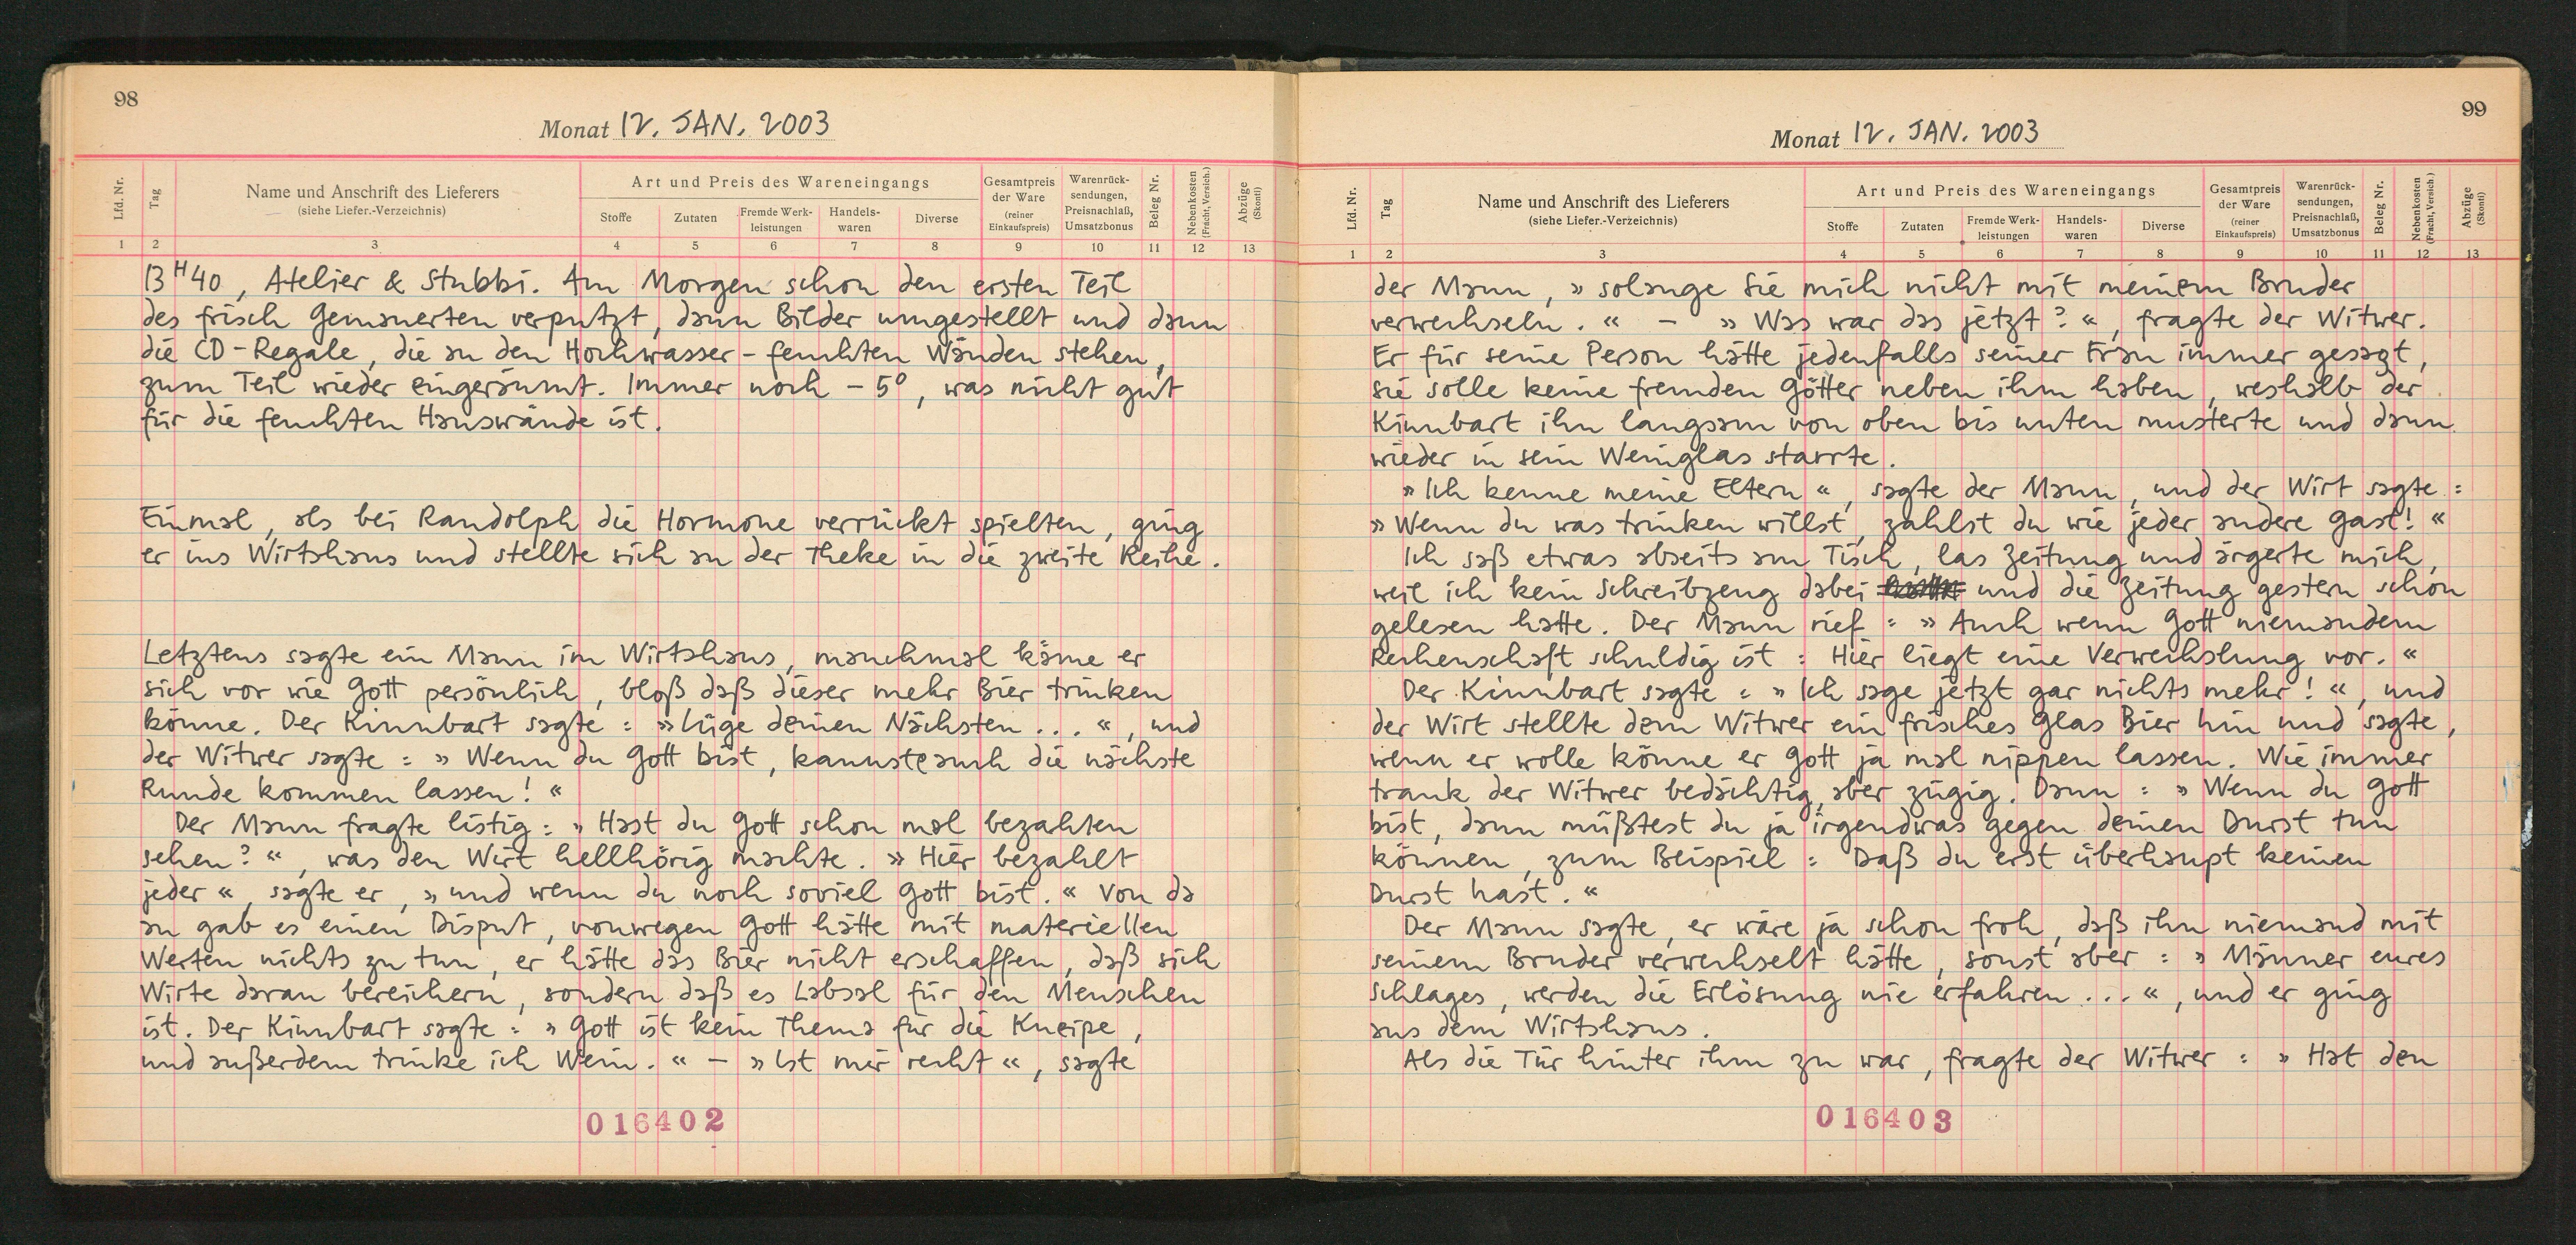 98
Monat 12. JAN. 2003
Lfd. Nr.
Tag
Name und Anschrift des Lieferers
(siehe Liefer.-Verzeichnis)
Art und Preis des Wareneingangs
Stoffe
Zutaten
Fremde Werk-
leistungen
Handels-
waren
Diverse
Gesamtpreis
der Ware
(reiner
Einkaufspreis)
Warenrück-
sendungen,
Preisnachlaß,
Umsatzbonus
Beleg Nr.
Nebenkosten
(Fracht, Versich.)
Abzüge
(Skonti)
1 2 3 4 5 6 7 8 9 10 11 12 13
13H40, Atelier & Stubbi. Am Morgen schon den ersten Teil
des frisch Gemauerten verputzt, dann Bilder umgestellt und dann
die CD-Regale, die an den Hochwasser-feuchten Wänden stehen,
zum Teil wieder eingeräumt. Immer noch -5°, was nicht gut
für die feuchten Hauswände ist.
Einmal, als bei Randolph die Hormone verrückt spielten, ging
er ins Wirtshaus und stellte sich an der Theke in die zweite Reihe.
Letztens sagte ein Mann im Wirtshaus, manchmal käme er
sich vor wie Gott persönlich, bloß daß dieser mehr Bier trinken
könne. Der Kinnbart sagte: »Lüge deinen Nächsten...«, und
der Witwer sagte: »Wenn du Gott bist, kannste auch die nächste
Runde kommen lassen!«
Der Mann fragte listig: »Hast du Gott schon mal bezahlen
sehen?«, was den Wirt hellhörig machte. »Hier bezahlt
jeder«, sagte er, »und wenn du noch soviel Gott bist.« Von da
an gab es einen Disput, vonwegen Gott hätte mit materiellen
Werten nichts zu tun, er hätte das Bier nicht erschaffen, daß sich
Wirte daran bereichern, sondern daß es Labsal für den Menschen
ist. Der Kinnbart sagte: »Gott ist kein Thema für die Kneipe,
und außerdem trinke ich Wein.« - »Ist mir recht«, sagte
016402
99
Monat 12. JAN. 2003
Lfd. Nr.
Tag
Name und Anschrift des Lieferers
(siehe Liefer.-Verzeichnis)
Art und Preis des Wareneingangs
Stoffe
Zutaten
Fremde Werk-
leistungen
Handels-
waren
Diverse
Gesamtpreis
der Ware
(reiner
Einkaufspreis)
Warenrück-
sendungen,
Preisnachlaß,
Umsatzbonus
Beleg Nr.
Nebenkosten
(Fracht, Versich.)
Abzüge
(Skonti)
1 2 3 4 5 6 7 8 9 10 11 12 13
der Mann, »solange Sie mich nicht mit meinem Bruder
verwechseln.« - »Was war das jetzt?«, fragte der Witwer.
Er für seine Person hätte jedenfalls seiner Frau immer gesagt,
sie solle keine fremden Götter neben ihm haben, weshalb der
Kinnbart ihn langsam von oben bis unten musterte und dann
wieder in sein Weinglas starrte.
»Ich kenne meine Eltern«, sagte der Mann, und der Wirt sagte:
»Wenn du was trinken willst, zahlst du wie jeder andere Gast!«
Ich saß etwas abseits am Tisch, las Zeitung und ärgerte mich,
weil ich kein Schreibzeug dabei und die Zeitung gestern schon
gelesen hatte. Der Mann rief: »Auch wenn Gott niemandem
Rechenschaft schuldig ist: Hier liegt eine Verwechslung vor.«
Der Kinnbart sagte: »Ich sage jetzt gar nichts mehr!«, und
der Wirt stellte dem Witwer ein frisches Glas Bier hin und sagte,
wenn er wolle könne er Gott ja mal nippen lassen. Wie immer
trank der Witwer bedächtig, aber zügig. Dann: »Wenn du Gott
bist, dann müßtest du ja irgendwas gegen deinen Durst tun
können, zum Beispiel: Daß du erst überhaupt keinen
Durst hast.«
Der Mann sagte, er wäre ja schon froh, daß ihn niemand mit
seinem Bruder verwechselt hätte, sonst aber: »Männer eures
Schlages, werden die Erlösung nie erfahren...«, und er ging
aus dem Wirtshaus.
Als die Tür hinter ihm zu war, fragte der Witwer: »Hat den
016403